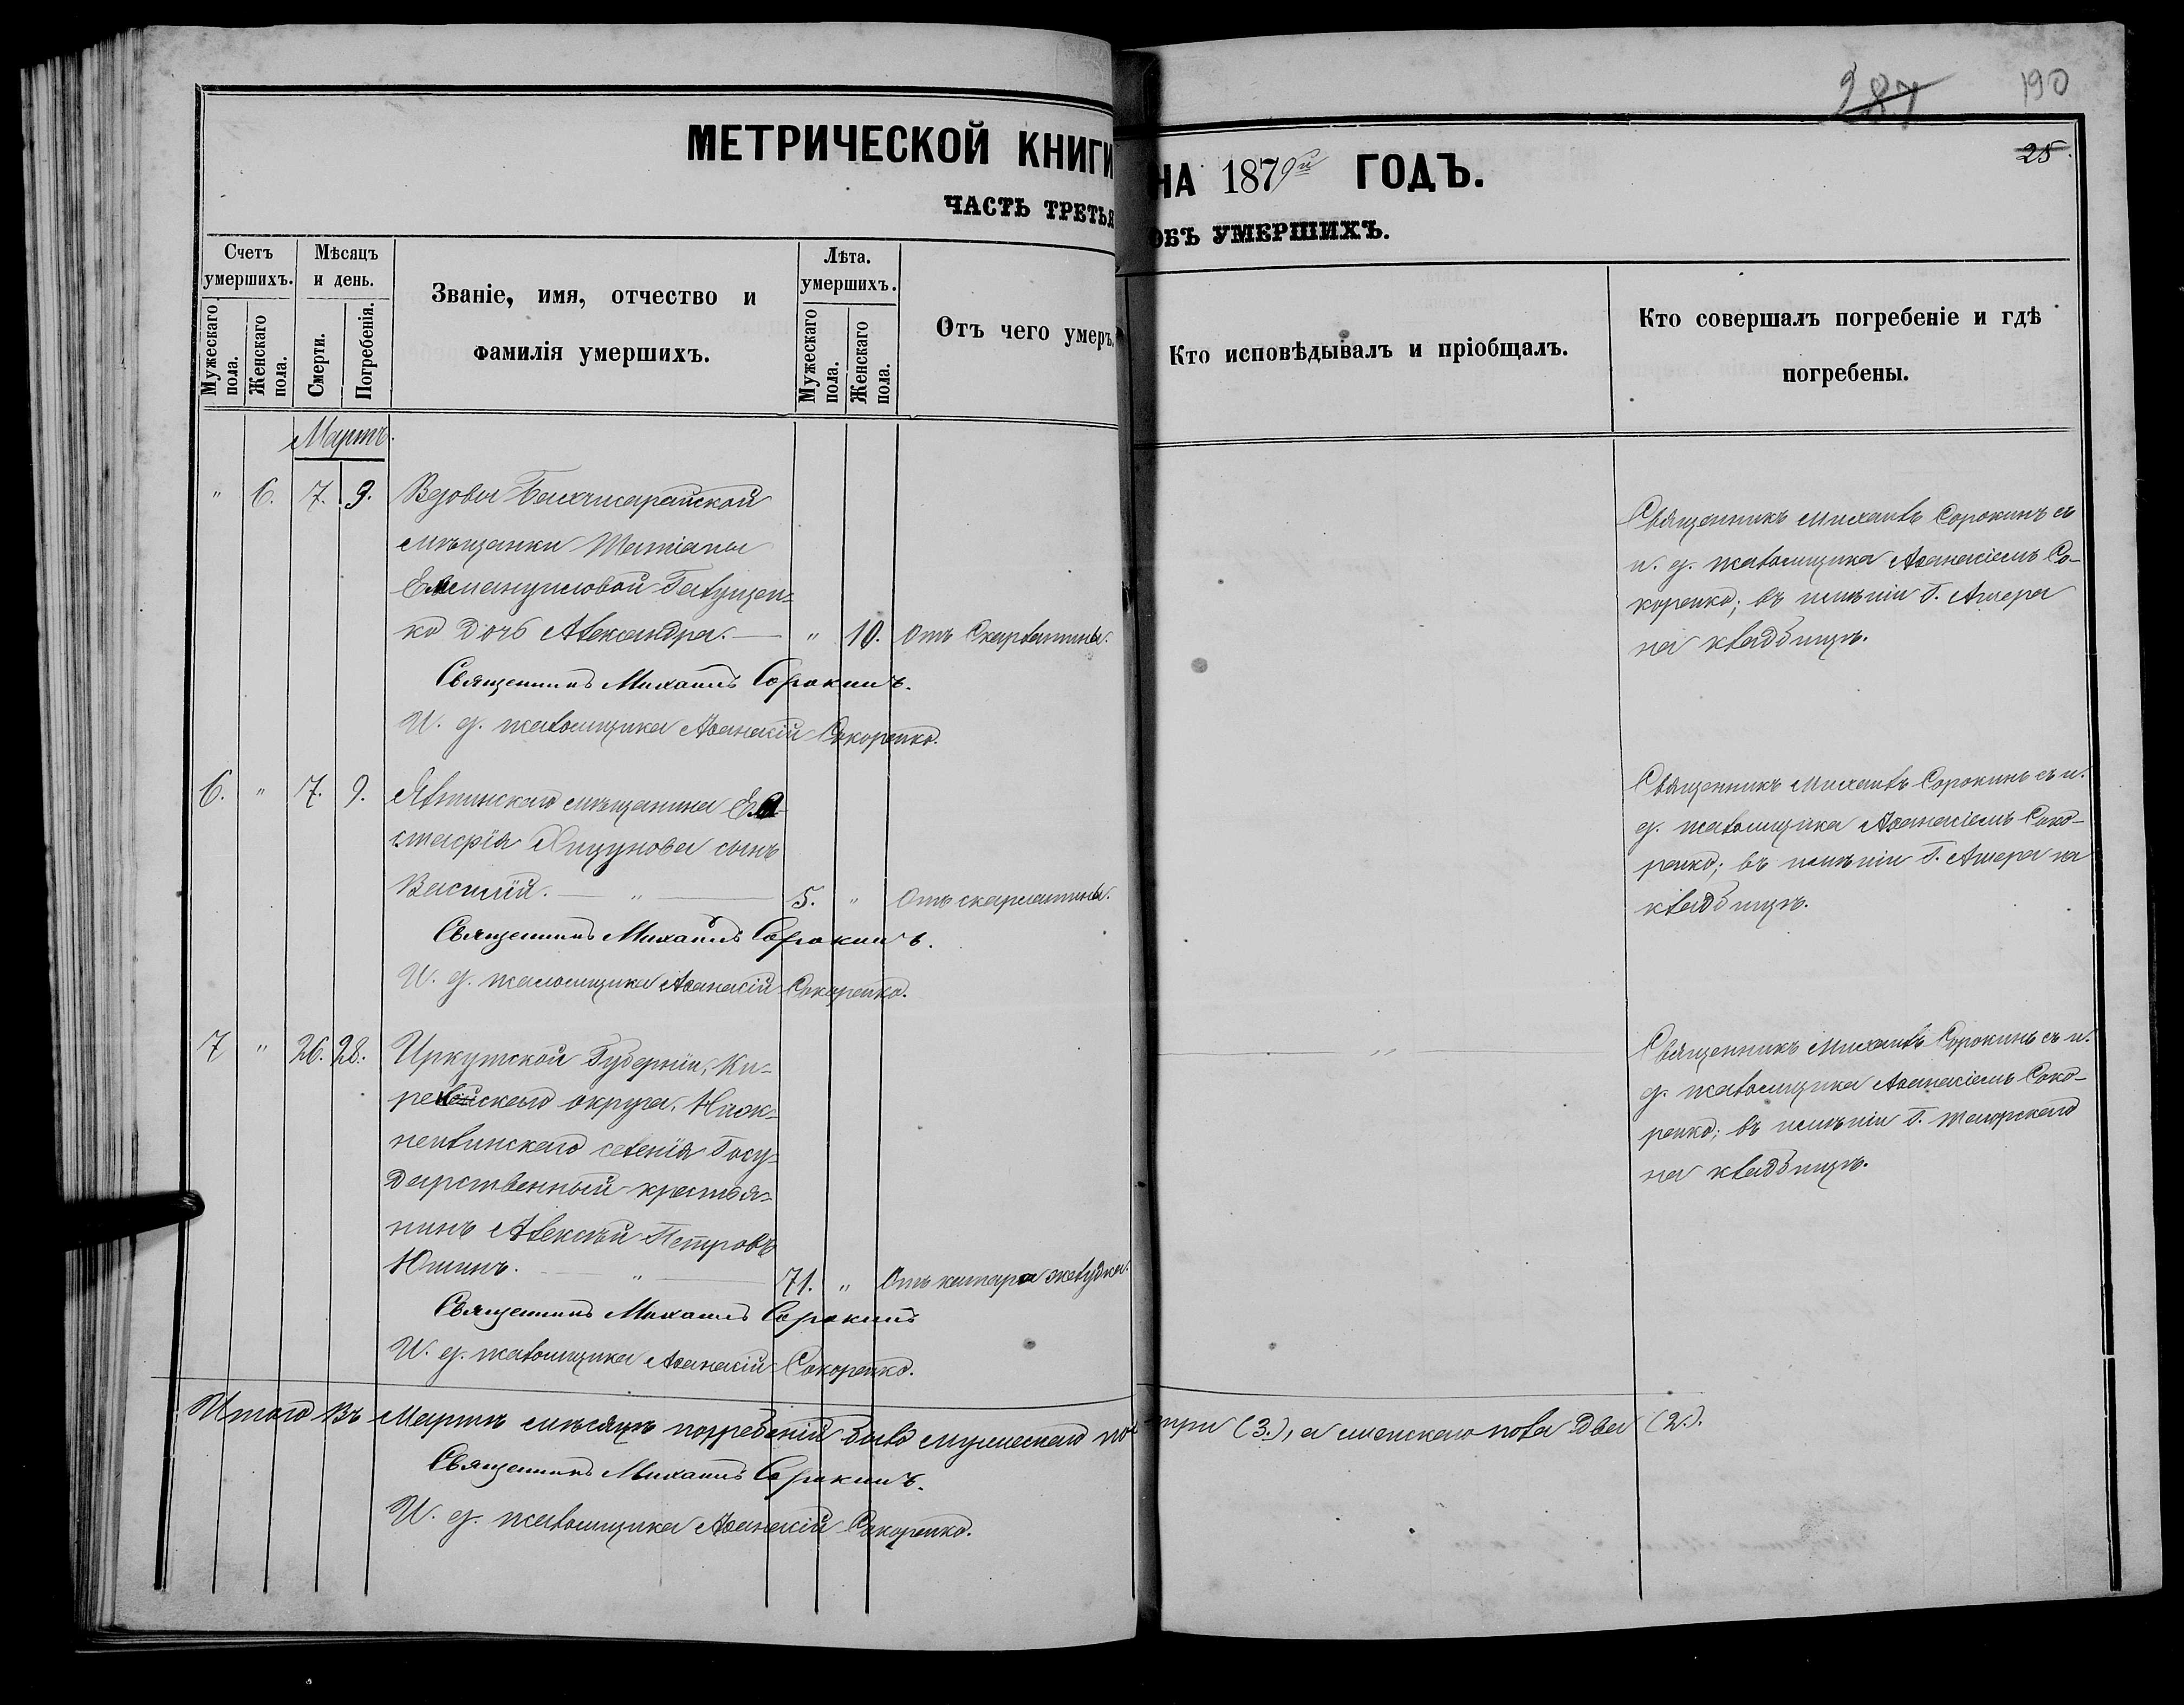 287
190
25.
МЕТРИЧЕСКОЙ КНИГИ НА 1879й ГОДЪ.
ЧАСТЬ ТРЕТЬЯ ОБЪ УМЕРШИХЪ.
Счетъ умершихъ.
Мужескаго пола.
Женскаго пола.
Мѣсяцъ и день.
Смерти.
Погребенія.
Званіе, имя, отчество и
фамилія умершихъ.
Лѣта. умершихъ.
Мужескаго пола.
Женскаго пола.
Отъ чего умеръ.
Кто исповѣдывалъ и пріобщалъ.
Кто совершалъ погребеніе и гдѣ
погребены.
Мартъ.
" 6. 7. 9. Вдовы Бахчисарайской
мѣщанки Татіаны
Еммануиловой
ко дочь Александра. — " 10. Отъ Скарлатины.
Священникъ Михаилъ Сорокинъ.
И. д. псаломщика Аѳанасій Сокоренко.
Священникъ Михаилъ Сорокинъ съ
и. д. псаломщика Аѳанасіемъ Со-
коренко; въ имѣніи Г. Ашера
на кладбищѣ.
6. " 7. 9. Ялтинскаго мѣщанина
сынъ
Василій. — " — 5. " Отъ скарлатины.
Священникъ Михаилъ Сорокинъ.
И. д. псаломщика Аѳанасій Сокоренко.
Священникъ Михаилъ Сорокинъ съ и.
д. псаломщика Аѳанасіемъ Соко-
ренко; въ имѣніи Г. Ашера на
кладбищѣ.
7 " 26. 28. Иркутской Губерніи, Ки-
ренскаго округа,
селенія Госу-
дарственный крестья-
нинъ Алексѣй Петровъ
Юшинъ. — " — 71. " Отъ катара желудка.
Священникъ Михаилъ Сорокинъ
И. д. псаломщика Аѳанасій Сокоренко.
"
Священникъ Михаилъ Сорокинъ съ и.
д. псаломщика Аѳанасіемъ Соко-
ренко; въ имѣніи Г.
на кладбищѣ.
Итого въ Мартѣ мѣсяцѣ погребеній было мужескаго пол три (3.), а женскаго пола два (2.).
Священникъ Михаилъ Сорокинъ.
И. д. псаломщика Аѳанасій Сокоренко.